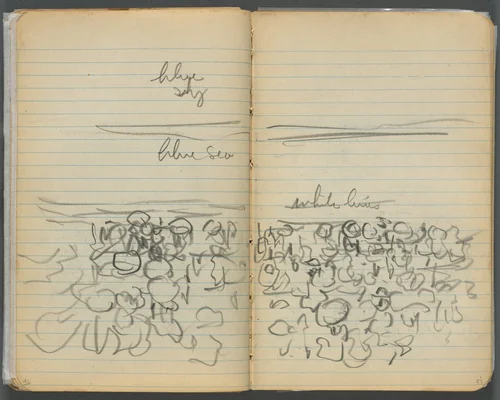 blue
sky
blue sea
white lines